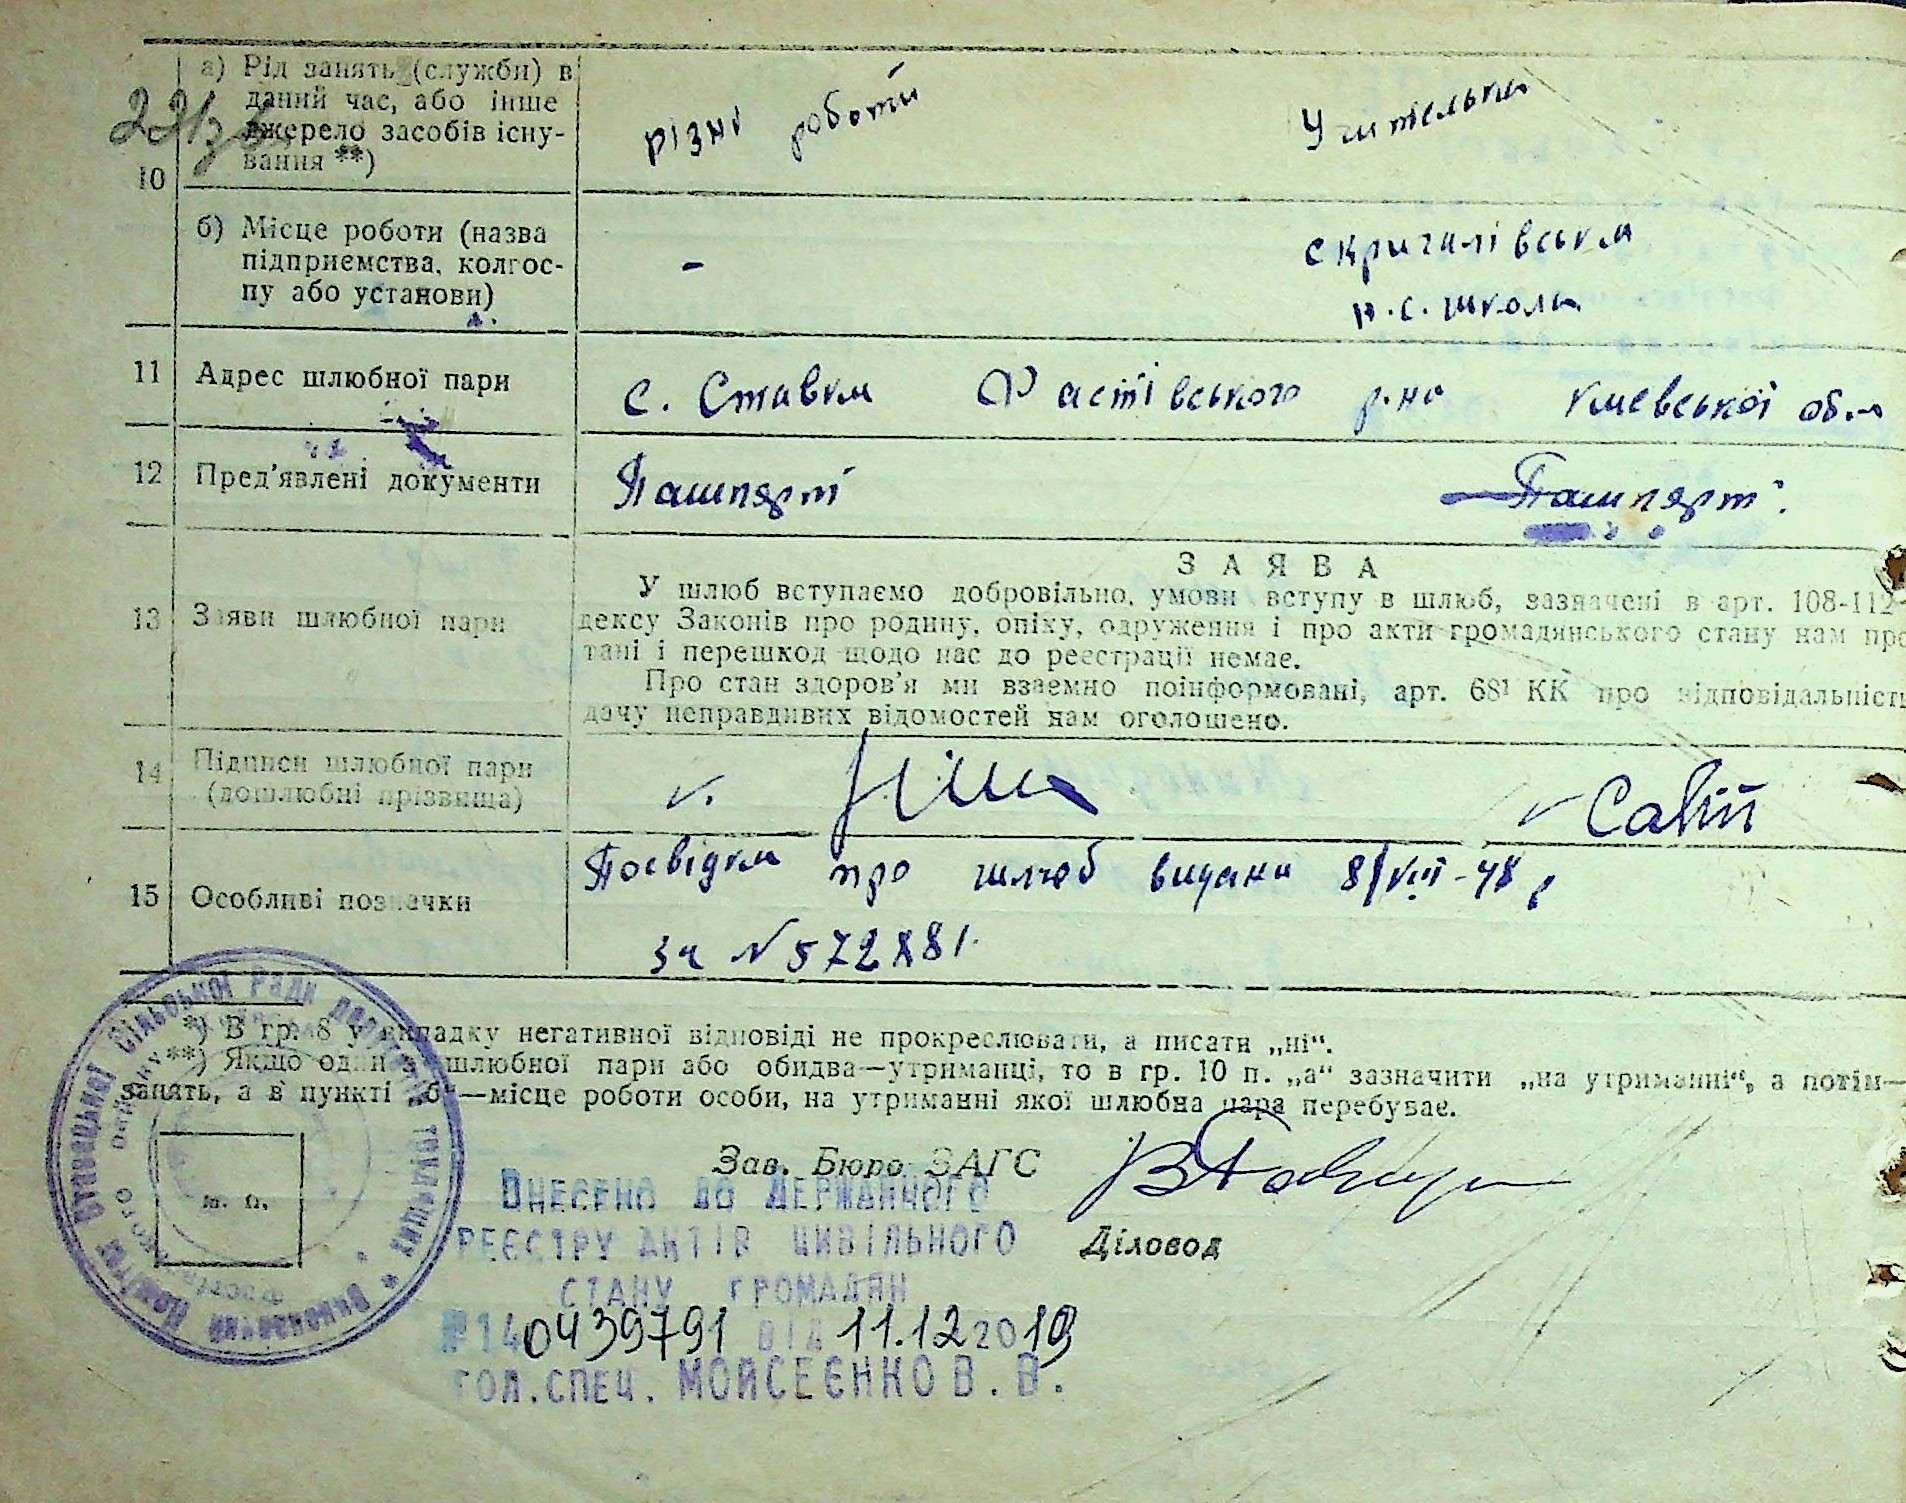 10
а) Рід занять (служби) в
даний час, або інше
джерело засобів існу-
вання **)
різні роботи
Учителька
б) Місце роботи (назва
підприємства, колгос-
пу або установи)
-
скригалівська
н.с. школа
11 Адрес шлюбної пари
с. Ставки Фастівського р-на Києвської обл
12 Пред'явлені документи
Пашпорт
Пашпорт
13 Заяви шлюбної пари
ЗАЯВА
У шлюб вступаємо добровільно, умови вступу в шлюб, зазначені в арт. 108-112
дексу Законів про родину, опіку, одруження і про акти громадянського стану нам про
тані і перешкод щодо нас до реєстрації немає.
Про стан здоров'я ми взаємно поінформовані, арт. 68¹ КК про відповідальність
дачу неправдивих відомостей нам оголошено.
14 Підписи шлюбної пари
(дошлюбні прізвища)
15 Особливі позначки
Посвідка про шлюб видана 8/VIII-48 р
за №
*) В гр. 8 у випадку негативної відповіді не прокреслювати, а писати „ні“.
**) Якщо один з шлюбної пари або обидва—утриманці, то в гр. 10 п. „а“ зазначити „на утриманні“, а потім—
занять, а в пункті „б“—місце роботи особи, на утриманні якої шлюбна пара перебуває.
Зав. Бюро ЗАГС
Діловод
М. П.
Сільської Ради депутатів трудящих * Виконавчий Комітет
ВНЕСЕНО ДО ДЕРЖАВНОГО
РЕЄСТРУ АКТІВ ЦИВІЛЬНОГО
СТАНУ ГРОМАДЯН
№ 140439791 ВІД 11.12 2019
ГОЛ.СПЕЦ. МОЙСЕЄНКО В. В.